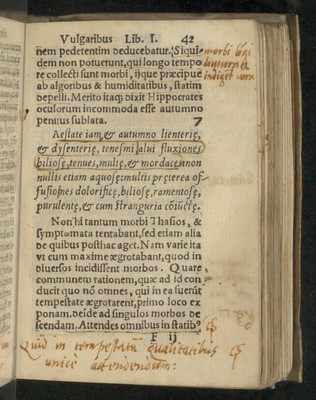 Vulgaribus Lib. I. 42
nem pedetentim deducebatur. Siqui-
dem non potuerunt, qui longo tempo
re collecti sunt morbi, ijque præcipue
ab algoribus & humiditatibus, statim
depelli. Merito itaq; dixit Hippocrates
oculorum incommoda esse autumno
penitus sublata. 7
Aestate iam & autumno lienterię,
& dysenterię, tenesmi alui fluxiones
biliosę, tenues, multę, & mordaces non
nullis etiam aquosę: multis pręterea of-
fusiones dolorificę, biliosę, ramentosę,
purulentę, & cum stranguria cōiūctę.
Non hi tantum morbi Thasios, &
symptomata tentabant, sed etiam alia
de quibus posthac aget. Nam varie ita
vt cum maxime ægrotabant, quod in
diuersos incidissent morbos. Quare
communem rationem, quæ ad id con
ducit quo nō omnes, qui in ea fuerūt
tempestate ægrotarent, primo loco ex
ponam. deīde ad singulos morbos de
scendam. Attendes omnibus in statib9
F ij
morbi
indiget
Quid in tempestatū qualitatibus
unicè attendendum: